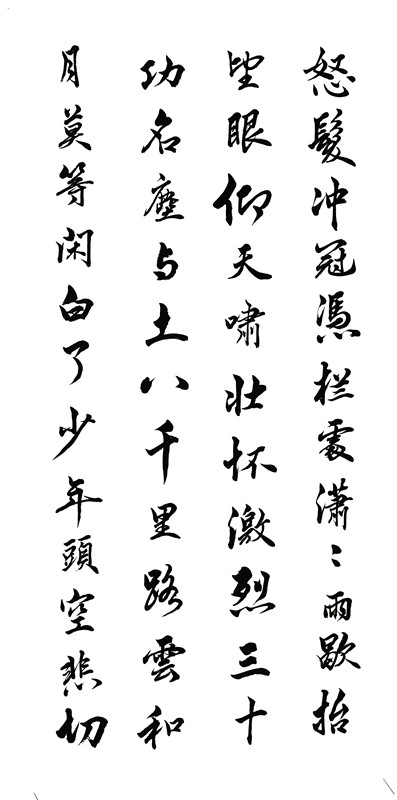 怒髮冲冠憑栏處潇〻雨歇抬
望眼仰天嘯壮怀激烈三十
功名塵与土八千里路雲和
月莫等闲白了少年頭空悲切